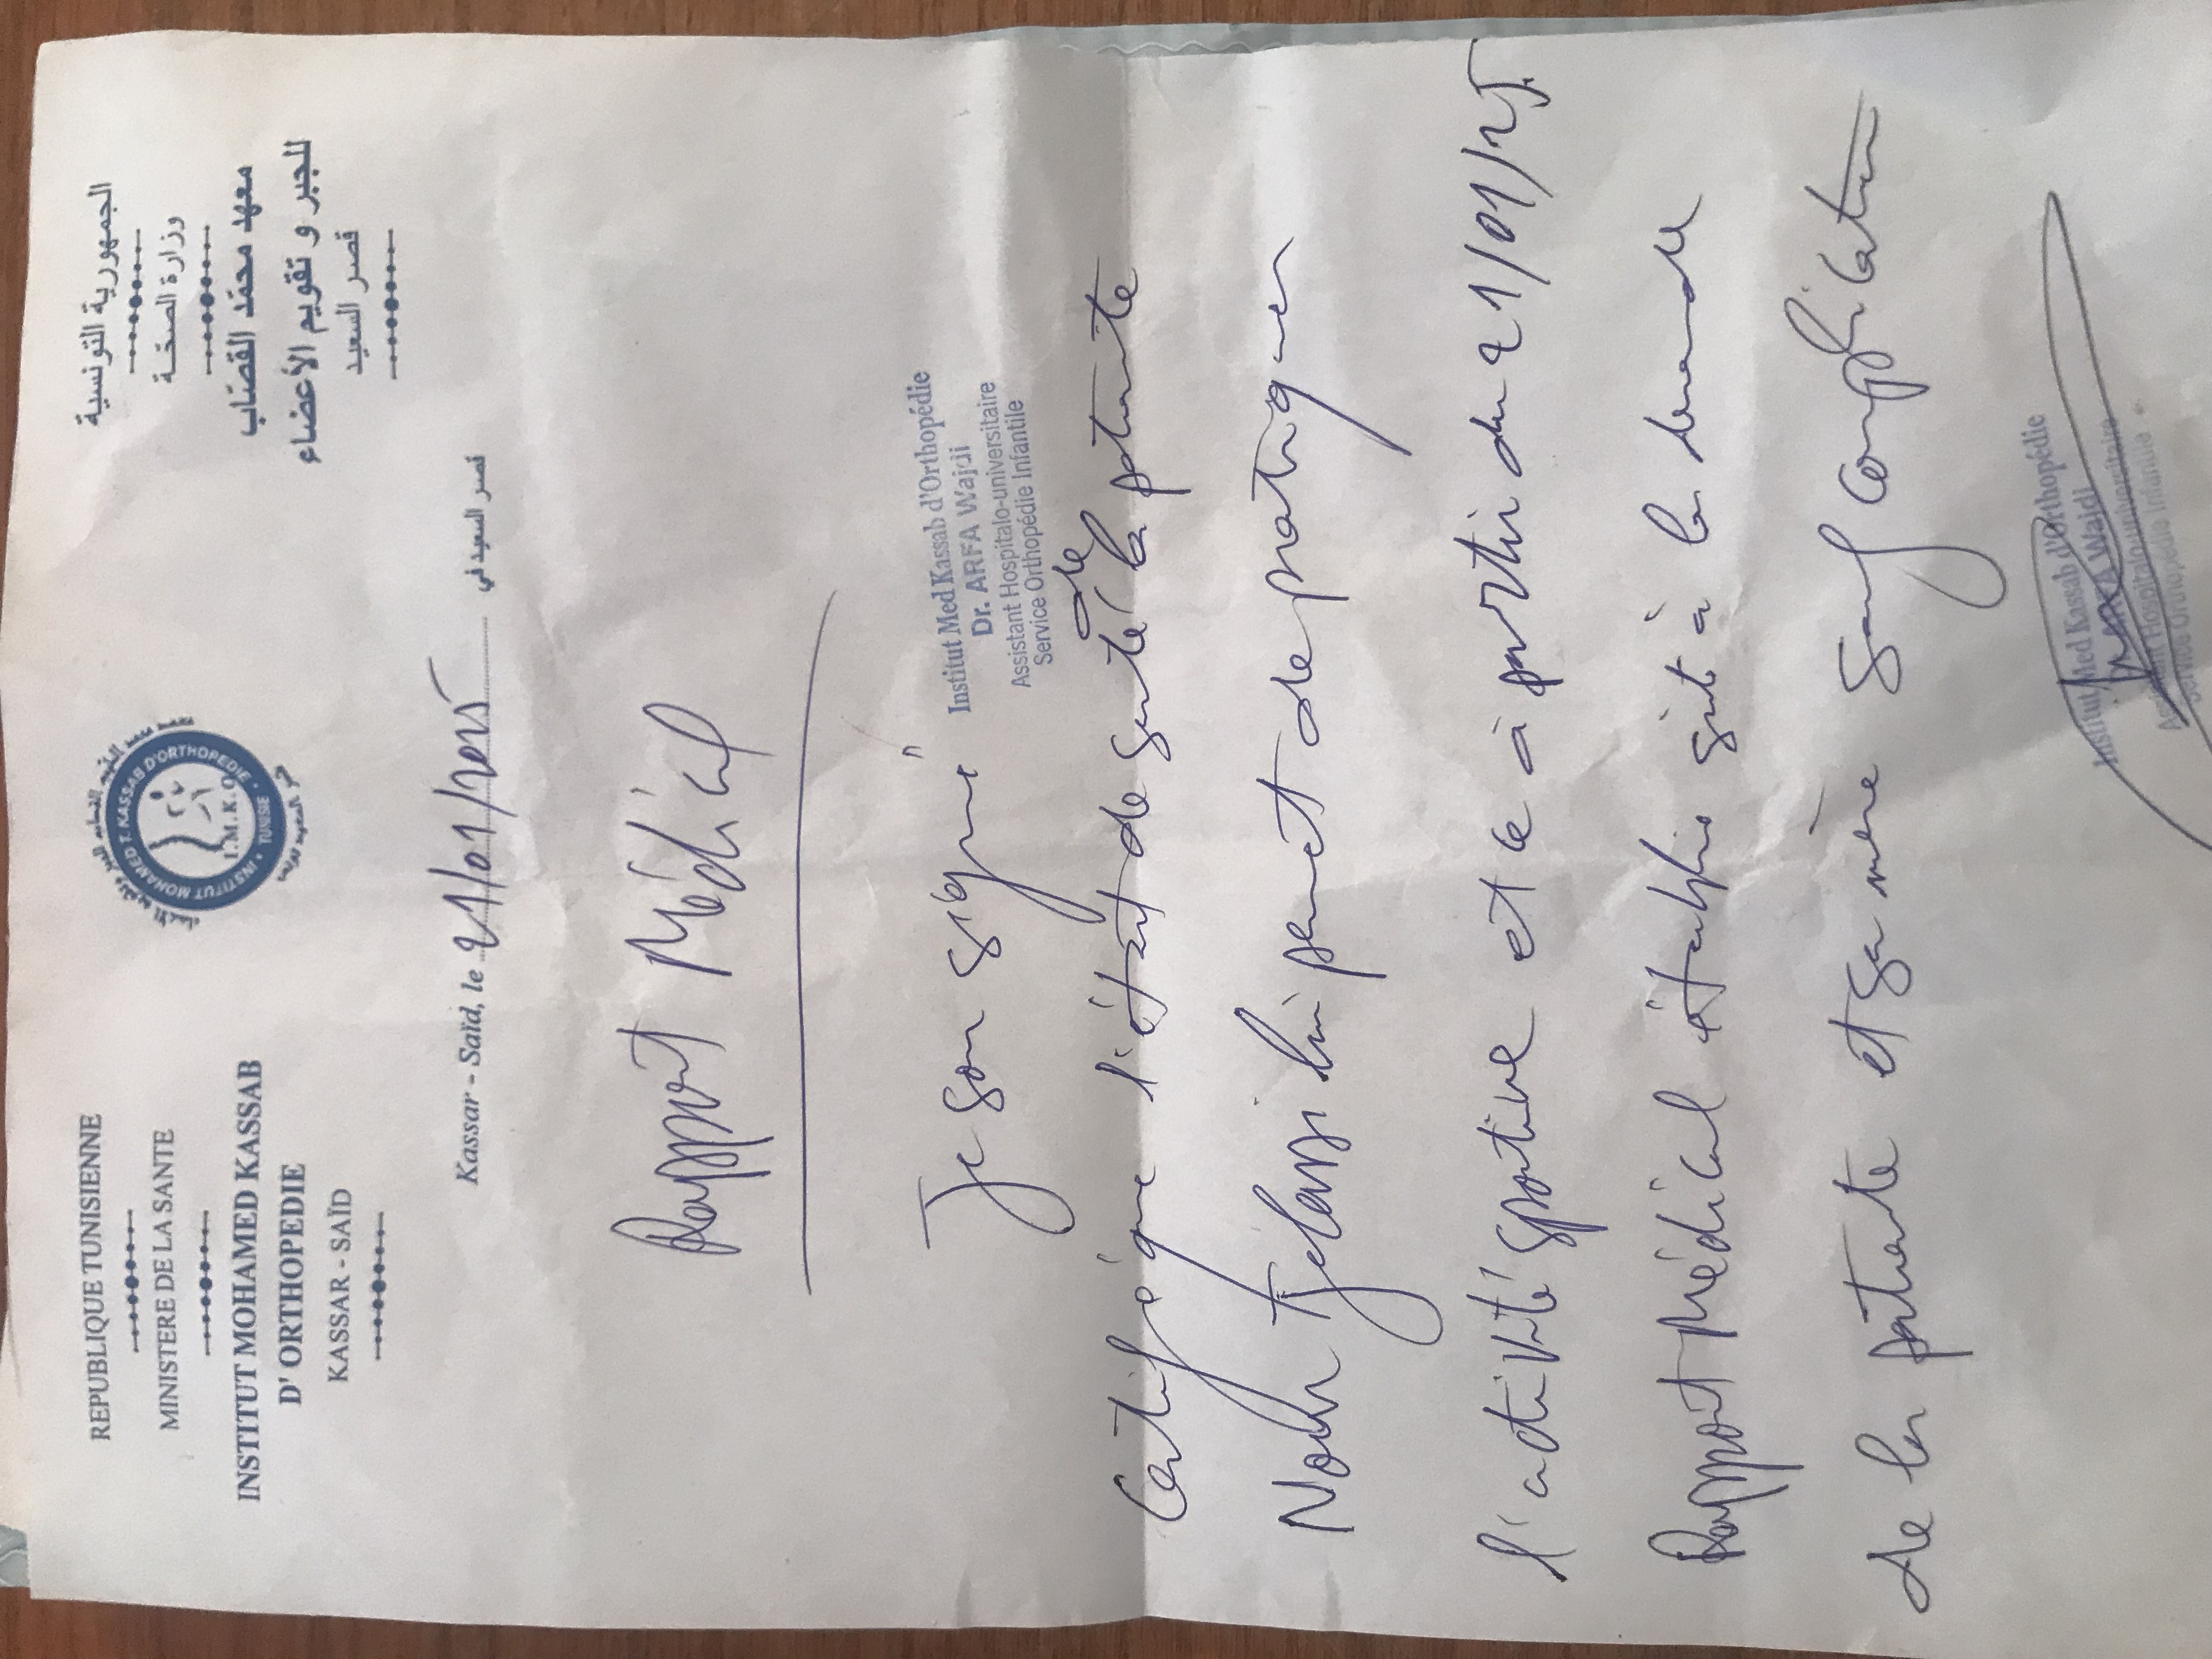 REPUBLIQUE TUNISIENNE
MINISTERE DE LA SANTE
INSTITUT MOHAMED KASSAB
D' ORTHOPEDIE
KASSAR - SAÏD
INSTITUT MOHAMED T. KASSAB D'ORTHOPEDIE • TUNISIE •
I.M.K.O
الجمهورية التونسية
وزارة الصحّة
معهد محمّد القصّاب
للجبر و تقويم الأعضاء
قصر السعيد
Kassar - Saïd, le 21/01/2025 قصر السعيد في
Rapport Médical
Je sousigné "
Institut Med Kassab d'Orthopédie
Dr. ARFA Wajdi
Assistant Hospitalo-universitaire
Service Orthopédie Infantile
Certifie que l'état de santé de la patiente
Nour Tjelassi lui permet de pratiquer
l'activité sportive et ce à partir du 21/01/25.
Rapport médical établie suite à la demande
de la patiente et sa mère sauf complication
Institut Med Kassab d'Orthopédie
Dr. ARFA Wajdi
Assistant Hospitalo-universitaire
Service Orthopédie Infantile